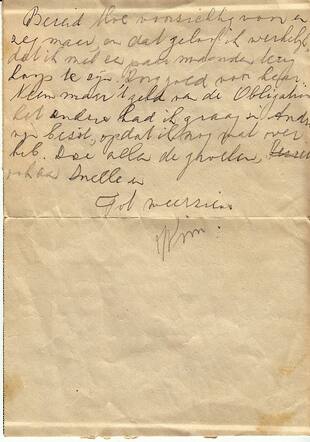 Bereid Moe voorzichtig voor en
zeg maar, en dat geloof ik werkelijk
dat ik met een paar maanden terug
hoop te zijn. Zorg goed voor haar.
Neem maar 't geld van de Obligation
het andere had ik graag
opdat ik nog wat over
heb. Doe allen de groeten,
Snelle en
Tot weerziens
Wim.